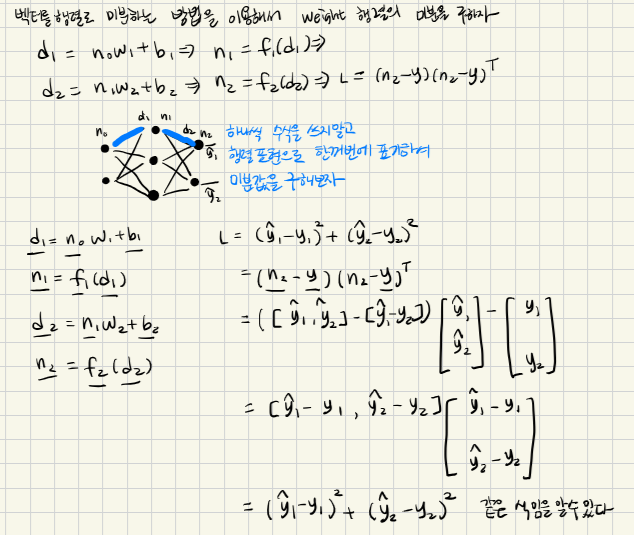 벡터를 행렬로 미분하는 방법을 이용해서 weight 행렬의 미분을 구하자
d₁ = n₀w₁+b₁ ⇒ n₁ = f₁(d₁) ⇒
d₂ = n₁w₂+b₂ ⇒ n₂ = f₂(d₂) ⇒ L = (n₂-y)(n₂-y)ᵀ
n₀ d₁ n₁ d₂ n₂
ŷ₁
ŷ₂
하나씩 수식을 쓰지말고
행렬표현으로 한꺼번에 표기하여
미분값을 구해보자
d₁ = n₀w₁+b₁
n₁ = f₁(d₁)
d₂ = n₁w₂+b₂
n₂ = f₂(d₂)
L = (ŷ₁-y₁)² + (ŷ₂-y₂)²
= (n₂-y)(n₂-y)ᵀ
= ([ŷ₁, ŷ₂] - [ŷ₁-y₂]) [ŷ₁ ŷ₂] - [y₁ y₂]
= [ŷ₁-y₁, ŷ₂-y₂] [ŷ₁-y₁ ŷ₂-y₂]
= (ŷ₁-y₁)² + (ŷ₂-y₂)² 같은 식임을 알수있다